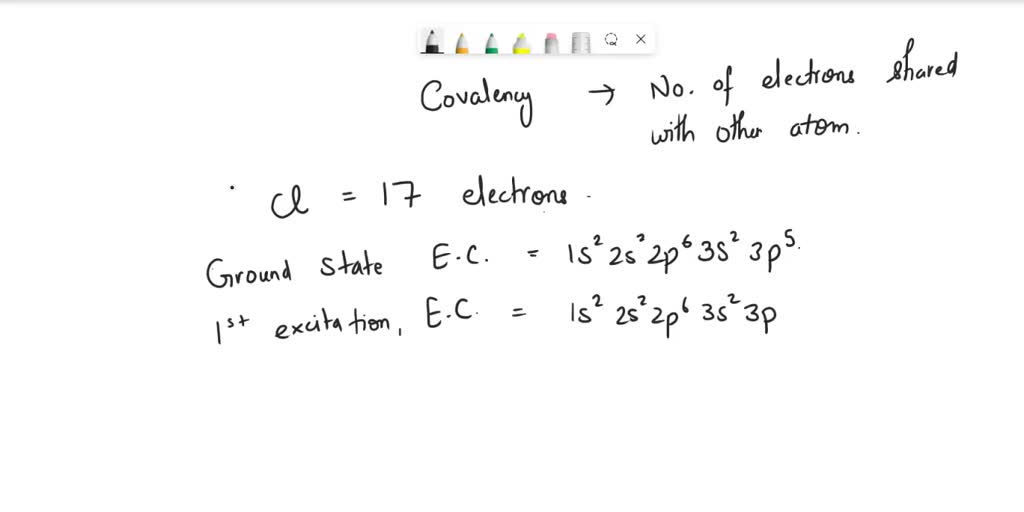 Covalency → No. of electrons shared
with other atom.
Cl = 17 electrons.
Ground state E.C. = 1s² 2s² 2p⁶ 3s² 3p⁵.
1st excitation, E.C. = 1s² 2s² 2p⁶ 3s² 3p